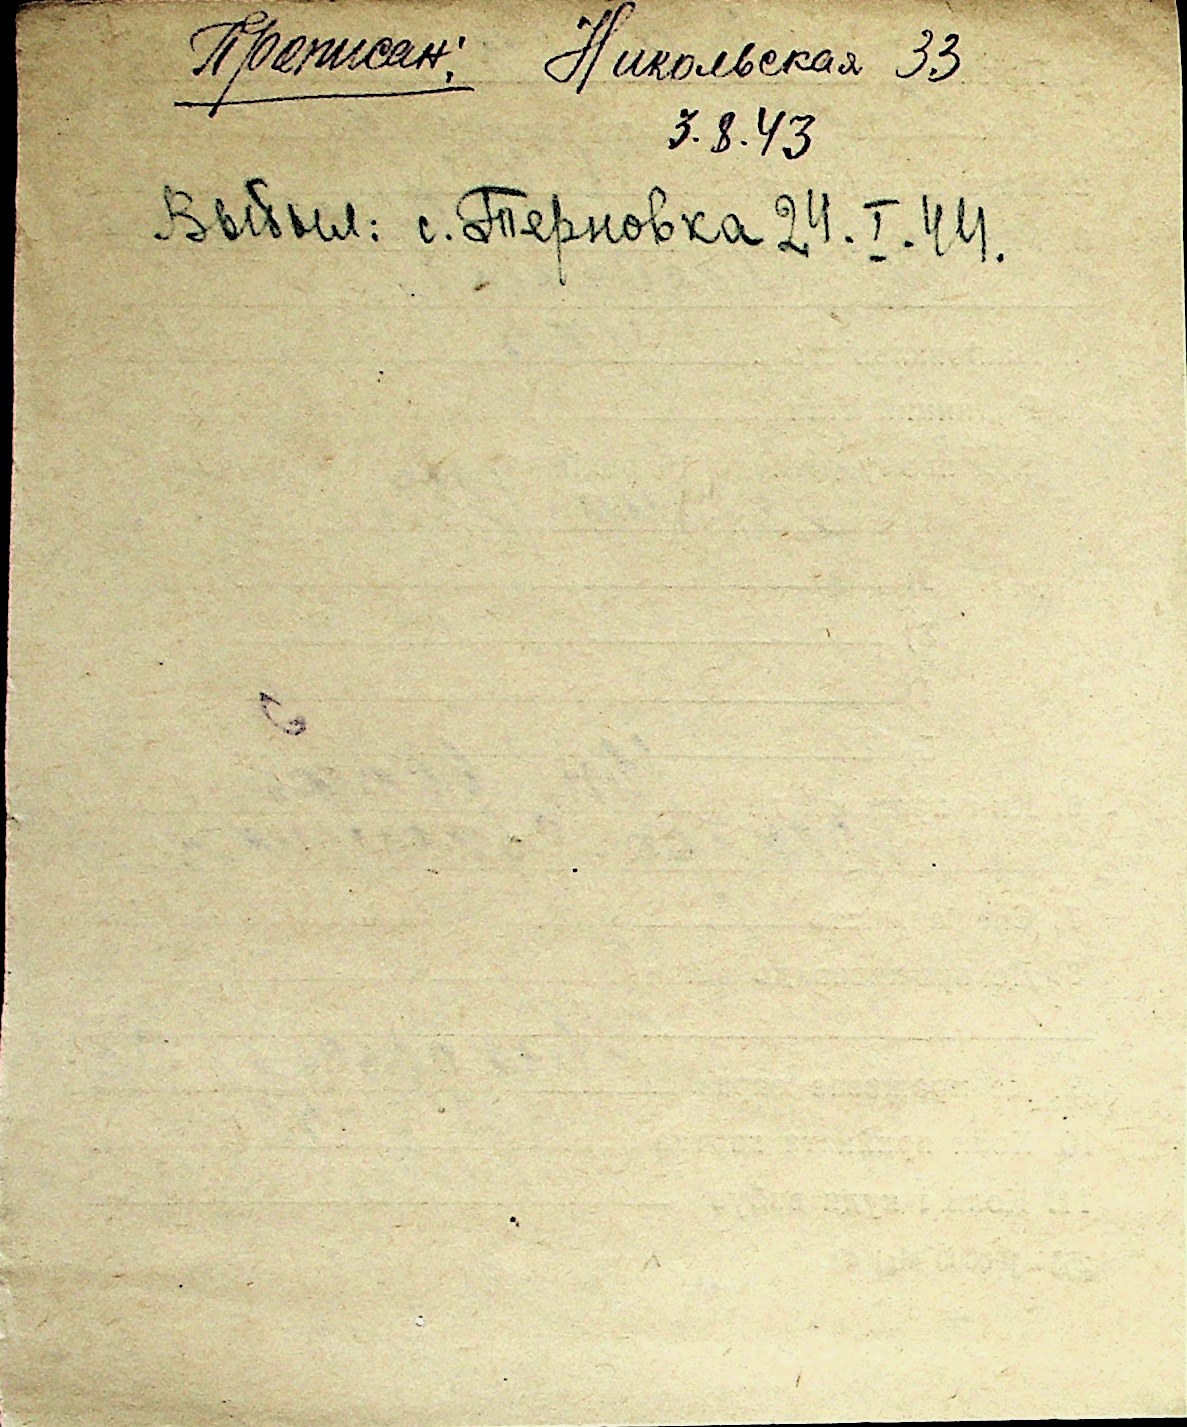 Прописан: Никольская 33
3.8.43
Выбыл: с. Терновка 24.I.44.